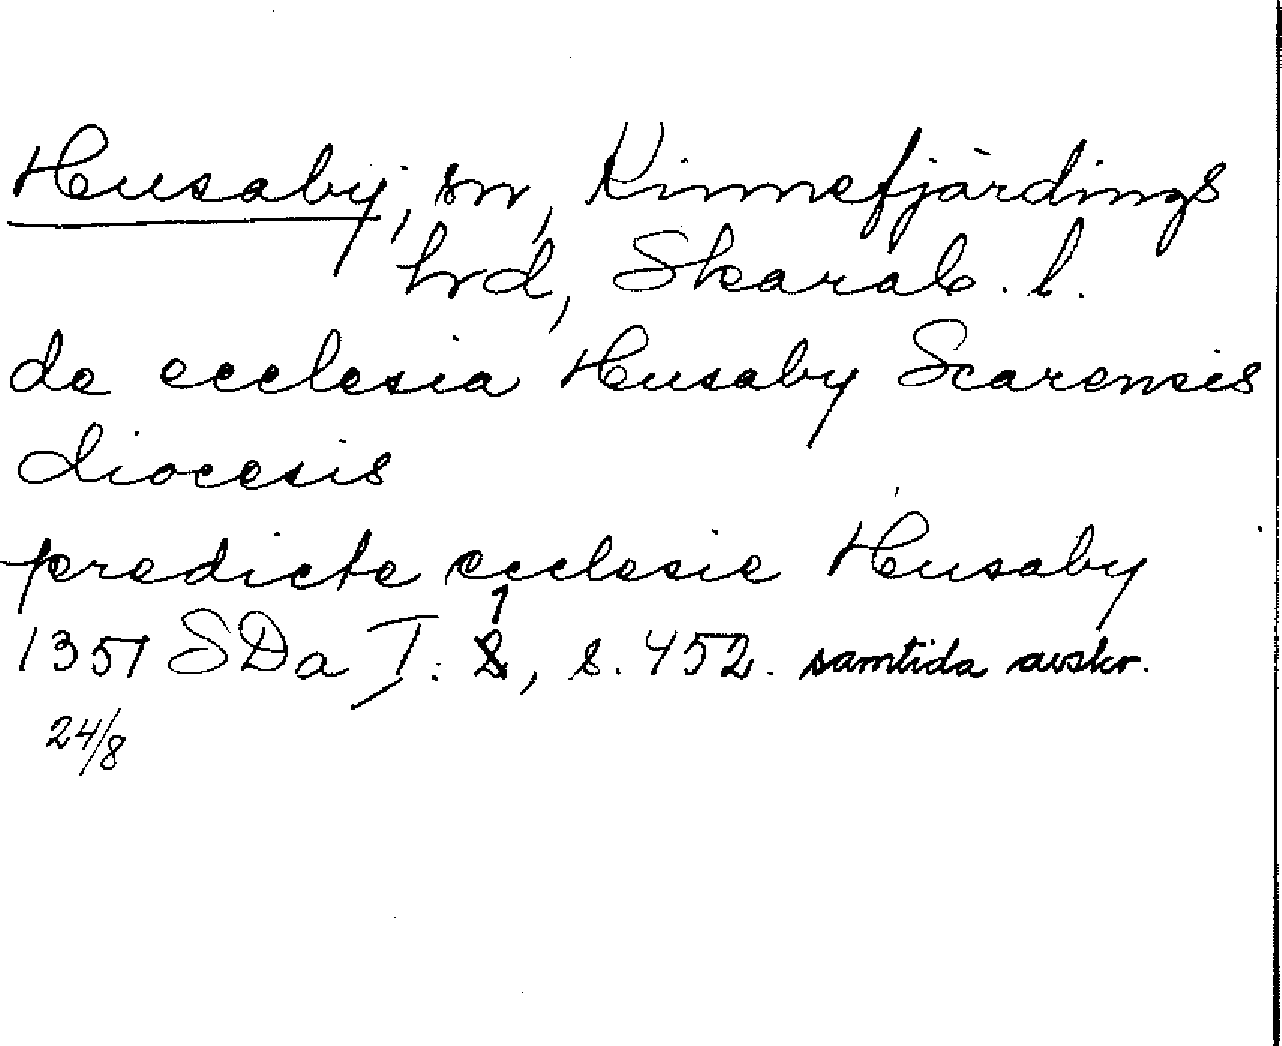 Husaby, sn, Kinnefjärdings
hrd, Skarab. l.
de ecclesia Husaby Scarensis
diocesis
predicte ecclesie Husaby
1351 SDa I: 1, s. 452. samtida avskr.
24/8